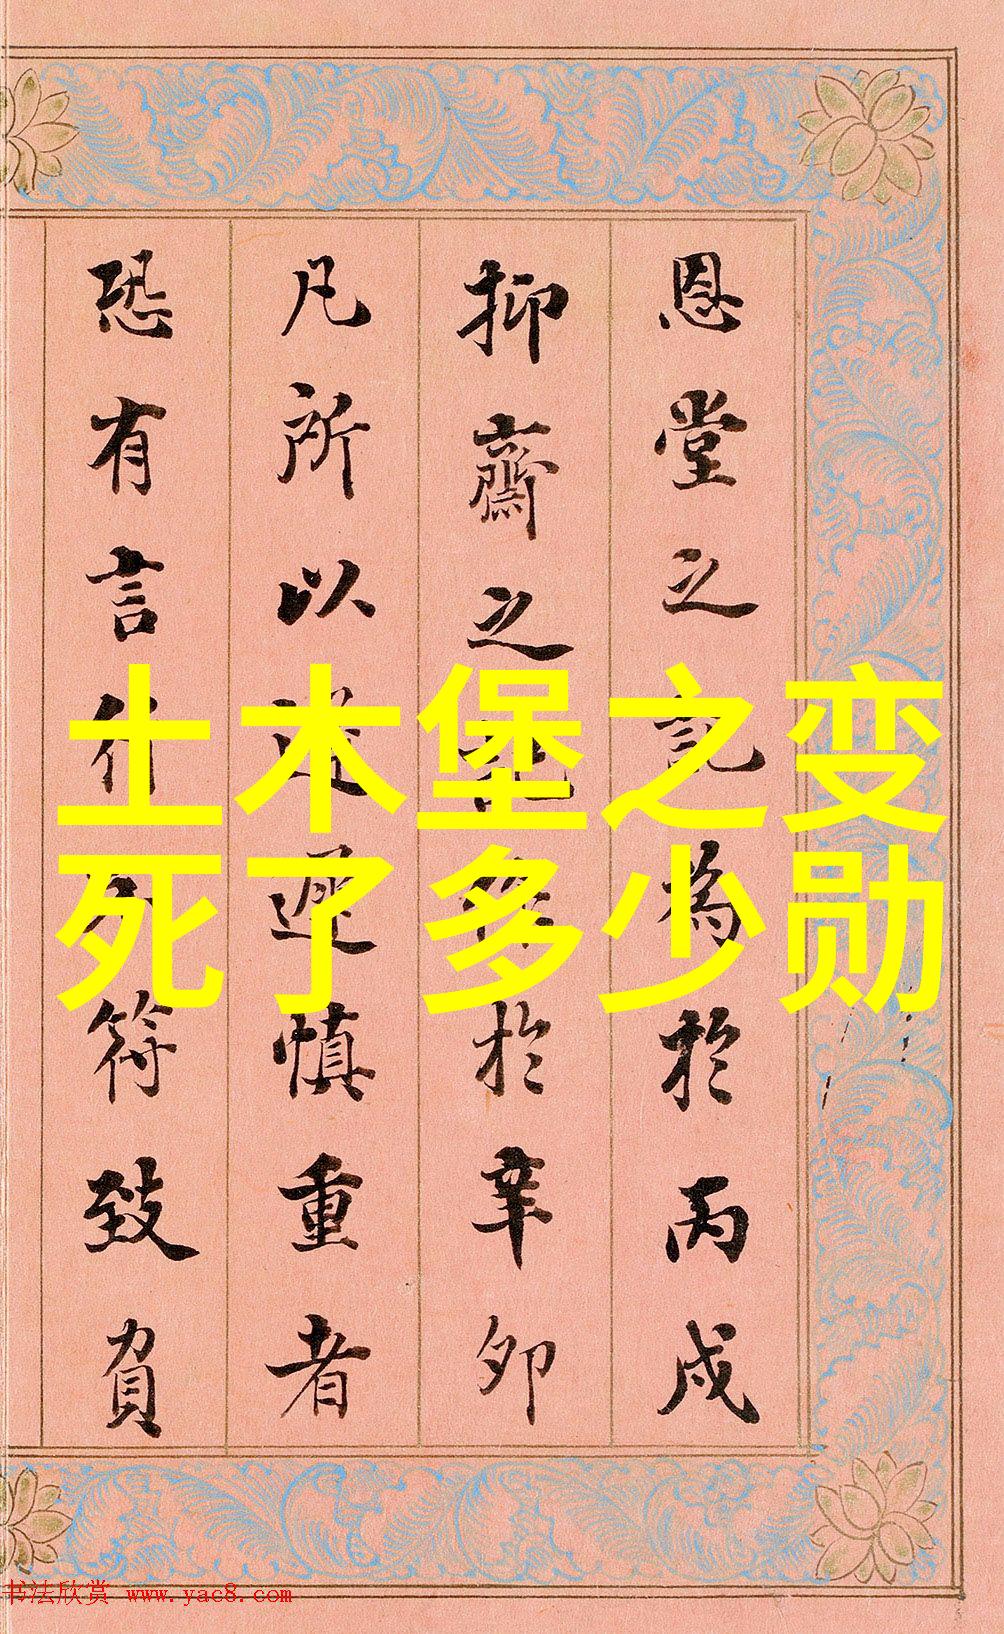 恩堂之記為於丙戌
抑齋之記作於辛卯
凡所以述遜慎重者
恐有言行不符致負
土木堡之变
死了多少勋
书法欣赏 www.yac8.com